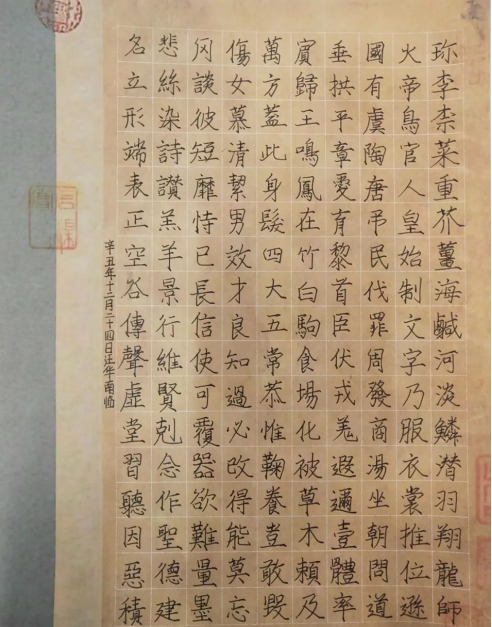 珎李柰菜重芥薑海鹹河淡鱗潜羽翔龍師
火帝鳥官人皇始制文字乃服衣裳推位遜
國有虞陶唐弔民伐罪周發商湯坐朝問道
垂拱平章愛育黎首臣伏戎羌遐邇壹體率
賓歸王鳴鳳在竹白駒食場化被草木賴及
萬方蓋此身髮四大五常恭惟鞠養豈敢毀
傷女慕清絜男效才良知過必改得能莫忘
罔談彼短靡恃已長信使可覆器欲難量墨
悲絲染詩讚羔羊景行維賢剋念作聖德建
名立形端表正空谷傳聲虛堂習聽因惡積
辛丑年十二月二十四日汪华南临